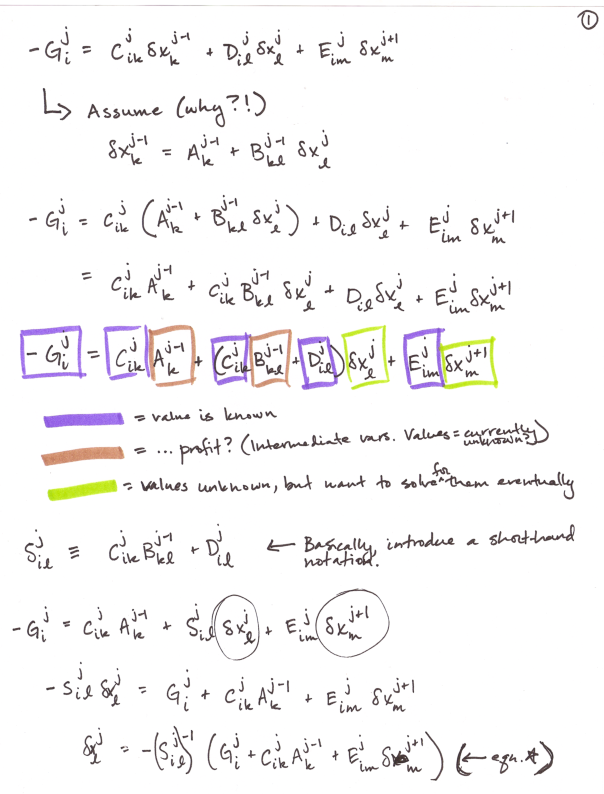 ①
-G_i^j = C_{ik}^j δx_k^{j-1} + D_{il}^j δx_l^j + E_{im}^j δx_m^{j+1}
↳ Assume (why?!)
δx_k^{j-1} = A_k^{j-1} + B_{kl}^{j-1} δx_l^j
-G_i^j = C_{ik}^j (A_k^{j-1} + B_{kl}^{j-1} δx_l^j) + D_{il} δx_l^j + E_{im}^j δx_m^{j+1}
= C_{ik}^j A_k^{j-1} + C_{ik}^j B_{kl}^{j-1} δx_l^j + D_{il} δx_l^j + E_{im}^j δx_m^{j+1}
-G_i^j = C_{ik}^j A_k^{j-1} + (C_{ik}^j B_{kl}^{j-1} + D_{il}^j) δx_l^j + E_{im}^j δx_m^{j+1}
= value is known
= ... profit? (Intermediate vars. Values = currently unknown?)
= values unknown, but want to solve for them eventually
S_{il}^j ≡ C_{ik}^j B_{kl}^{j-1} + D_{il}^j ← Basically, introduce a short-hand notation.
-G_i^j = C_{ik}^j A_k^{j-1} + S_{il}^j δx_l^j + E_{im}^j δx_m^{j+1}
-S_{il}^j δx_l^j = G_i^j + C_{ik}^j A_k^{j-1} + E_{im}^j δx_m^{j+1}
δx_l^j = -(S_{il}^j)^{-1} (G_i^j + C_{ik}^j A_k^{j-1} + E_{im}^j δx_m^{j+1}) (← eqn. ★)